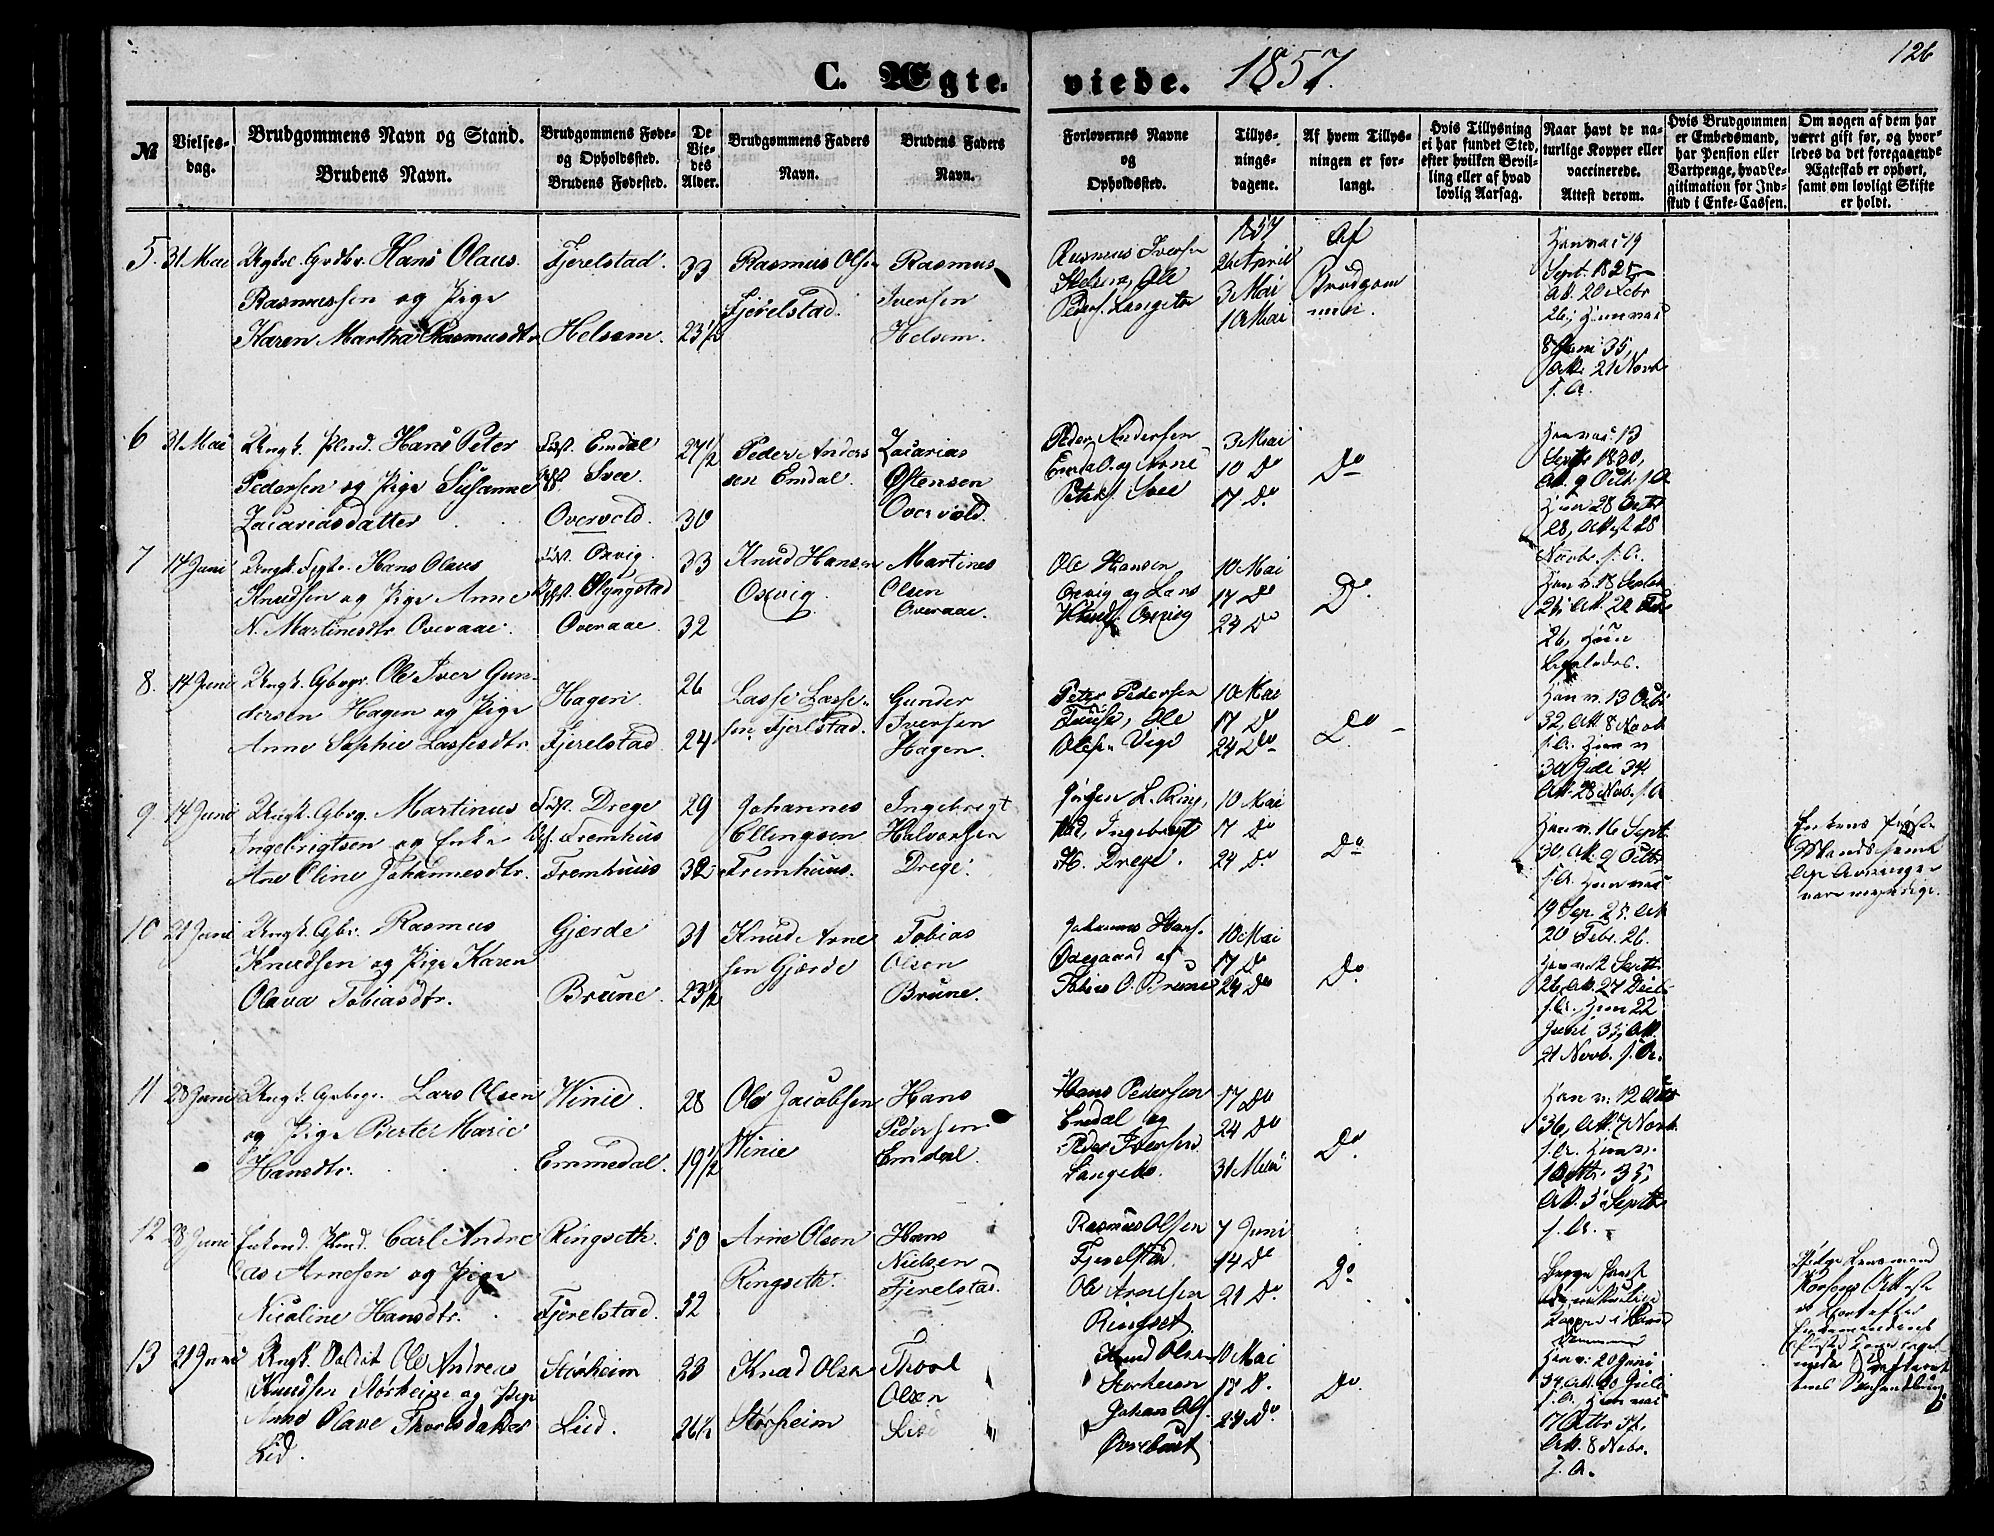 126
C. Ægteviede. 1857.
№
Vielses-
dag.
Brudgommens Navn og Stand.
Brudens Navn.
Brudgommens Føde-
og Opholdssted.
Brudens Fødested.
De
Vie-
des
Alder.
Brudgommens Faders
Navn.
Brudens Faders
Navn.
Forlovernes Navne
og
Opholdssted.
Tillys-
nings-
dagene.
Af hvem Tillys-
ningen er for-
langt.
Hvis Tillysning
ei har fundet Sted,
efter hvilken Bevil-
ling eller af hvad
lovlig Aarsag.
Naar havt de na-
turlige Kopper eller
vaccinerede.
Attest derom.
Hvis Brudgommen
er Embedsmand,
har Pension eller
Vartpenge, hvad Le-
gitimation for Ind-
skud i Enke-Cassen.
Om nogen af dem har
været gift før, og hvor-
ledes da det foregaaende
Ægteskab er ophørt,
samt om lovligt Skifte
er holdt.
5. 31 Mai
Hans Olaus
Rasmussen og Pige
Karen Martha Rasmusdtr
Fjerelstad.
Helsem.
33
23 1/2
Rasmus Olsen
Fjerelstad.
Rasmus
Iversen
Helsem.
Rasmus Iversen
Helsem, Ole
Peders. Langeto
1857
26 April
3 Mai
10 Mai
Af
Brudgom
men.
Han vac 19
Sept. 1825
Att. 20 Febr
26, Hun vac
8 Juni 35,
Att. 21 Novb.
s. A.
6 31 Mai
Ungk. Hans Peter
Pedersen og Pige Susanne
Zacariasdatter
Emdal
Svee
Overvold.
27 1/2
30
Peder Anders
sen Emdal.
Zacarias
Ostensen
Overvold.
Peder Andersen
Emdal og Arne
Peters. Svee
3 Mai
10 Do
17 Do
Do
Han vac 13
Septr 1830,
Att. 9 Octb. s. A
Hun 28 Octbr
28, Att. 28
Novbr. s. A.
7 14 Juni
Ungk. Hans Olaus
Knudsen og Pige Anne
N. Martinesdtr Overaae.
Oxvig
Overaae.
33
32
Knud Hansen
Oxvig.
Martines
Olsen
Overaae.
Ole Hansen
Oxvig og Lars
Knuds. Oxvig
10 Mai
17 Do
24 Do
Do
26, Hun
8. 14 Juni
Ungk. Ole Iver Gun-
dersen Hagen og Pige
Anne Sophie Lassesdtr.
Hagen.
Fjerelstad
26
24
Lasse Lasse-
sen Fjerlstad.
Gunder
Iversen
Hagen.
Peter Pedersen
Ole
Oles. Vige
10 Mai
17 D
24 Do
Do
Han v. 13 Octbr
32, Att. 8 Novb
s. A. Hun v
30 Juli 34
Att. 28 Novb. s. A
9. 14 Juni
Ungk. Martinus
Ingebrigtsen og Enke
Ane Oline Johannesdtr.
Drege
Fremhuus
Fremhuus
29
32
Johannes
Ellingsen
Fremhuus.
Ingebrigt
Halvorsen
Drege.
Ingebrigt
H. Drege.
10 Mai
17 Do
24 Do
Do
Han v. 16 Sept.
30, Att. 9 Octb.
s. A. Hun vac
19 Sep. 25. Att
20 Febr. 26.
Enkens første
Mands samt
10 21 Juni
Ungk. Rasmus
Knudsen og Pige Karen
Olava Tobiasdtr.
Gjerde
Brune.
31
23 1/2
Knud Arne
sen Gjerde
Tobias
Olsen
Brune.
Johannes Hans.
Ødegaard og
Tobias O. Brune
10 Mai
17 Do
24 Do
Do
Han v. 2 Septbr
26, Att. 27 Decb
s. A. Hun 22
Juni 35, Att.
21 Novb. s. A.
11 28 Juni
Ungk. Lars Olsen
og Pige Berte Marie
Hansdtr.
Winie.
Emmedal.
28
19 1/2
Ole Jacobsen
Winie
Hans
Pedersen
Emdal
Hans Pedersen
Emdal og
Peder Iversen
Langeto.
17 Do
24 Do
31 Mai
Do
Han v. 12 Octbr
36, Att. 7 Novb.
s. A. Hun v.
1 Octbr. 35,
Att. 5 Septbr
s. A.
12 28 Juni
Enkemd. Carl Andre
as Arnesen og Pige
Nicoline Hansdtr.
Ringseth.
Fjerelstad.
50
52
Arne Olsen
Ringseth.
Hans
Nielsen
Fjerelstad.
Rasmus Olsen
Fjerelstad
Ole Arnesen
Ringset
7 Juni
14 Do
21 Do
Do
Begge havt
Kopper i
13 21 Juni
Ungk. Soldat Ole Andreas
Knudsen Størheim og Pige
Anne Olave Thorsdatter
Lid.
Størheim
Lied.
28
26 1/2
Knud Olsen
Størheim
Thoal
Olsen
Lied
Knud Olsen
Storheim
Johan Ols.
10 Mai
17 D.
24 Do.
Do.
Han v. 20 Juni
s. A. Hun vac
7 Octbr
Att. 8 Nobr.
s. A.